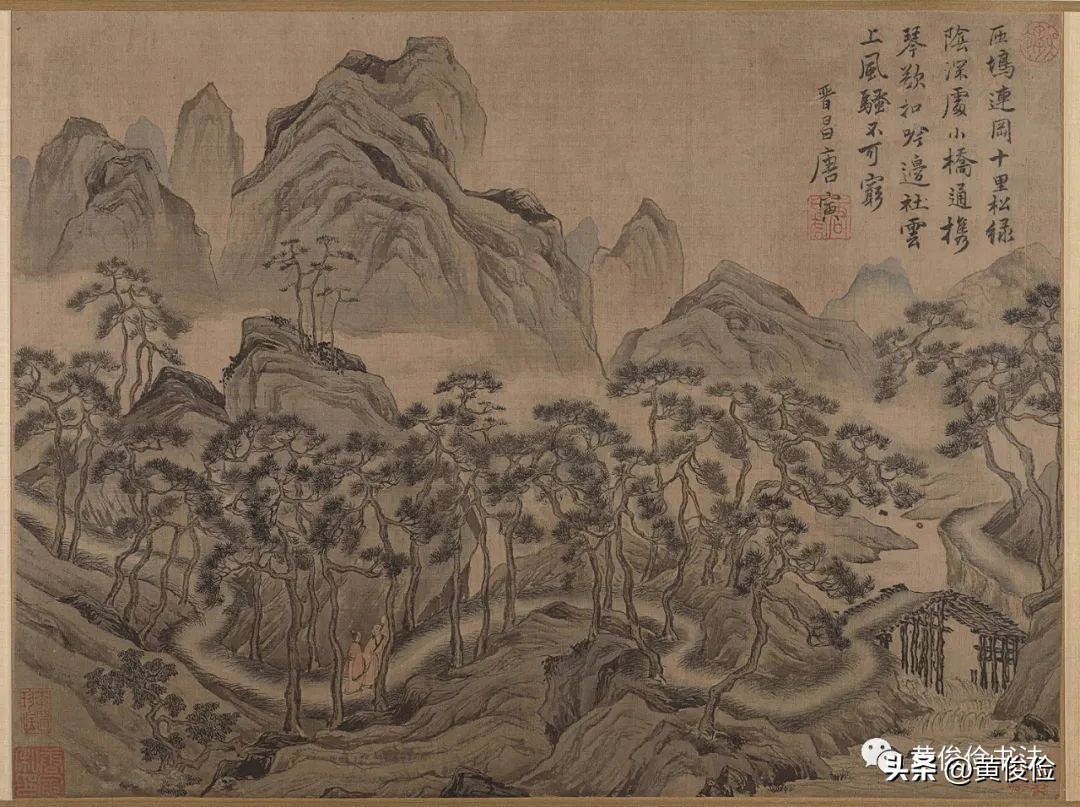 西塢連岡十里松綠
陰深處小橋通携
琴欲扣吟邊社雲
上風騷不可窮
晋昌唐寅
黄俊俭书法
头条 @黄俊俭